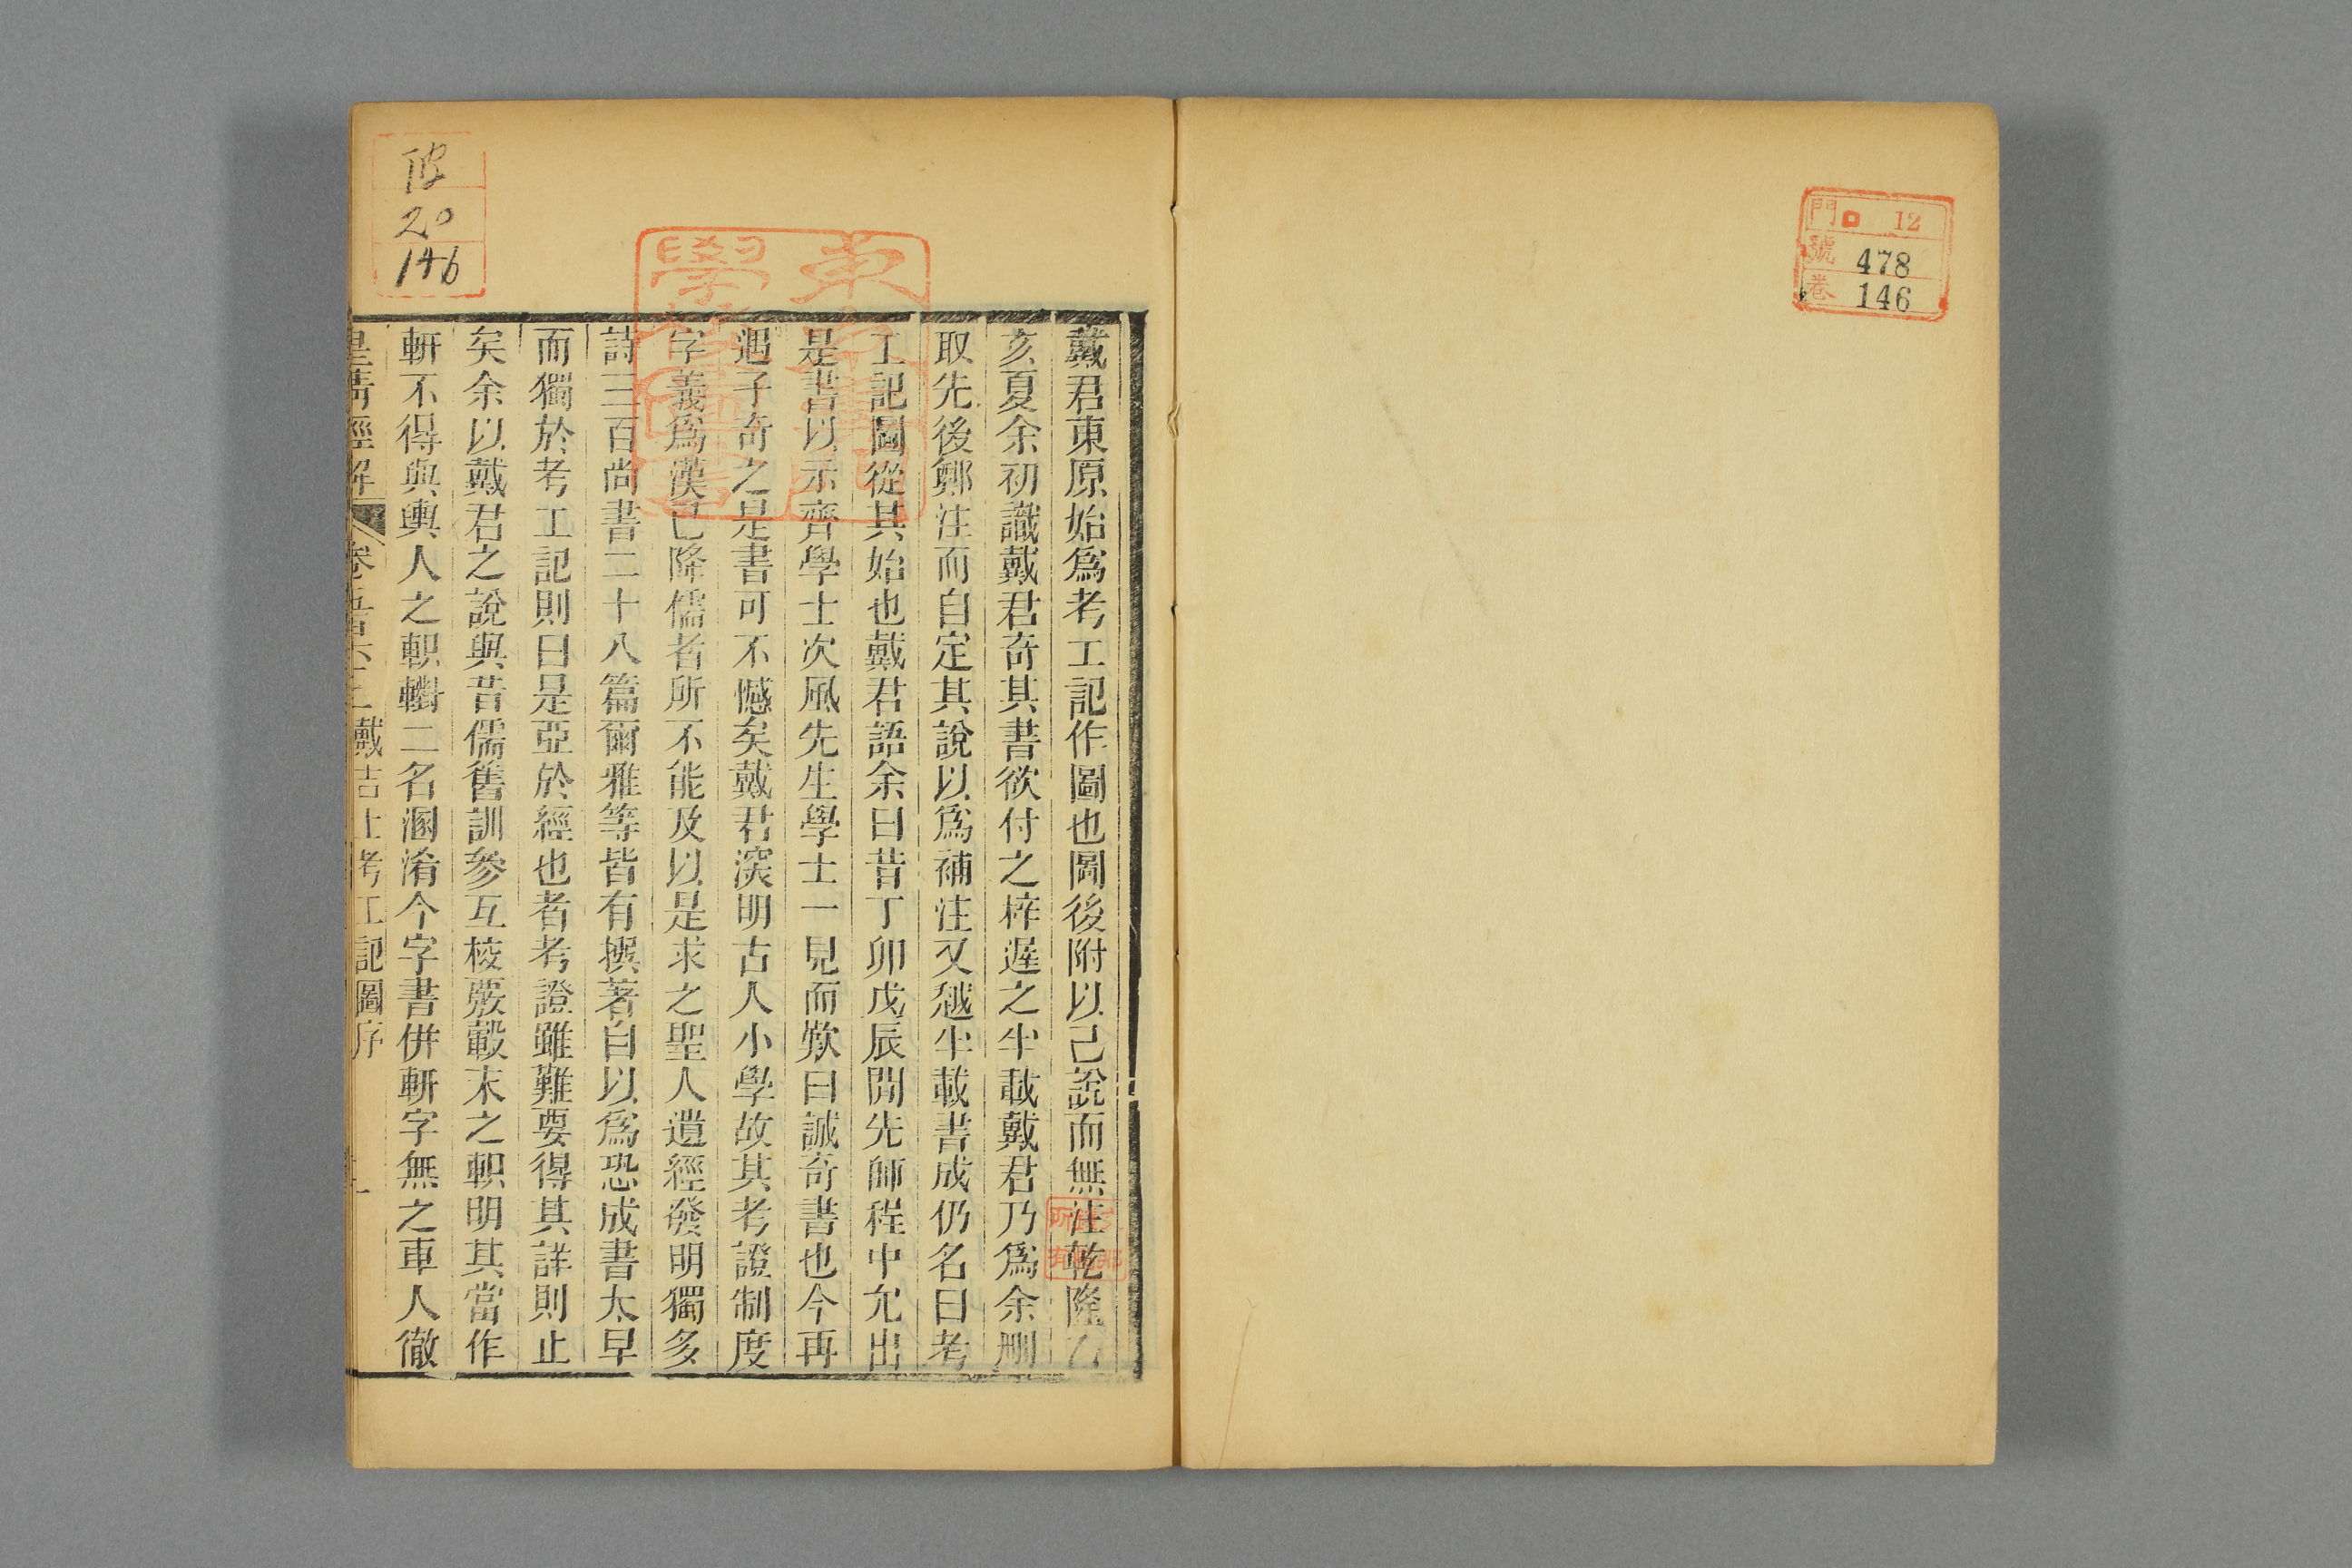 門 12
號 478
卷 146
戴君東原始爲考工記作圖也圖後附以己說而無注乾隆乙
亥夏余初識戴君奇其書欲付之梓遲之半載戴君乃爲余刪
取先後鄭注而自定其說以爲補注又越半載書成仍名曰考
工記圖從其始也戴君語余曰昔丁卯戊辰閒先師程中允出
是書以示齊學士次風先生學士一見而歎曰誠奇書也今再
遇子奇之是書可不憾矣戴君深明古人小學故其考證制度
字義爲漢已降儒者所不能及以是求之聖人遺經發明獨多
詩三百尚書二十八篇爾雅等皆有撰著自以爲恐成書太早
而獨於考工記則曰是亞於經也者考證雖難要得其詳則止
矣余以戴君之說與昔儒舊訓參互校覈轂末之軹明其當作
軒不得與輿人之軹轛二名溷淆今字書併軒字無之車人徹
皇清經解 卷五百六十三 戴吉士考工記圖序 一
20
146